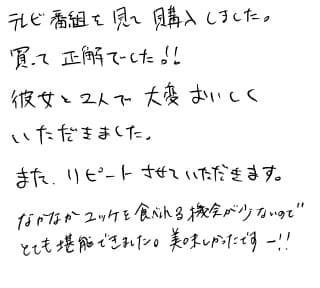 テレビ番組を見て購入しました。
買って正解でした!!
彼女と2人で大変おいしく
いただきました。
また、リピートさせていただきます。
なかなかユッケを食べれる機会が少ないので
とても堪能できました。美味しかったですー!!